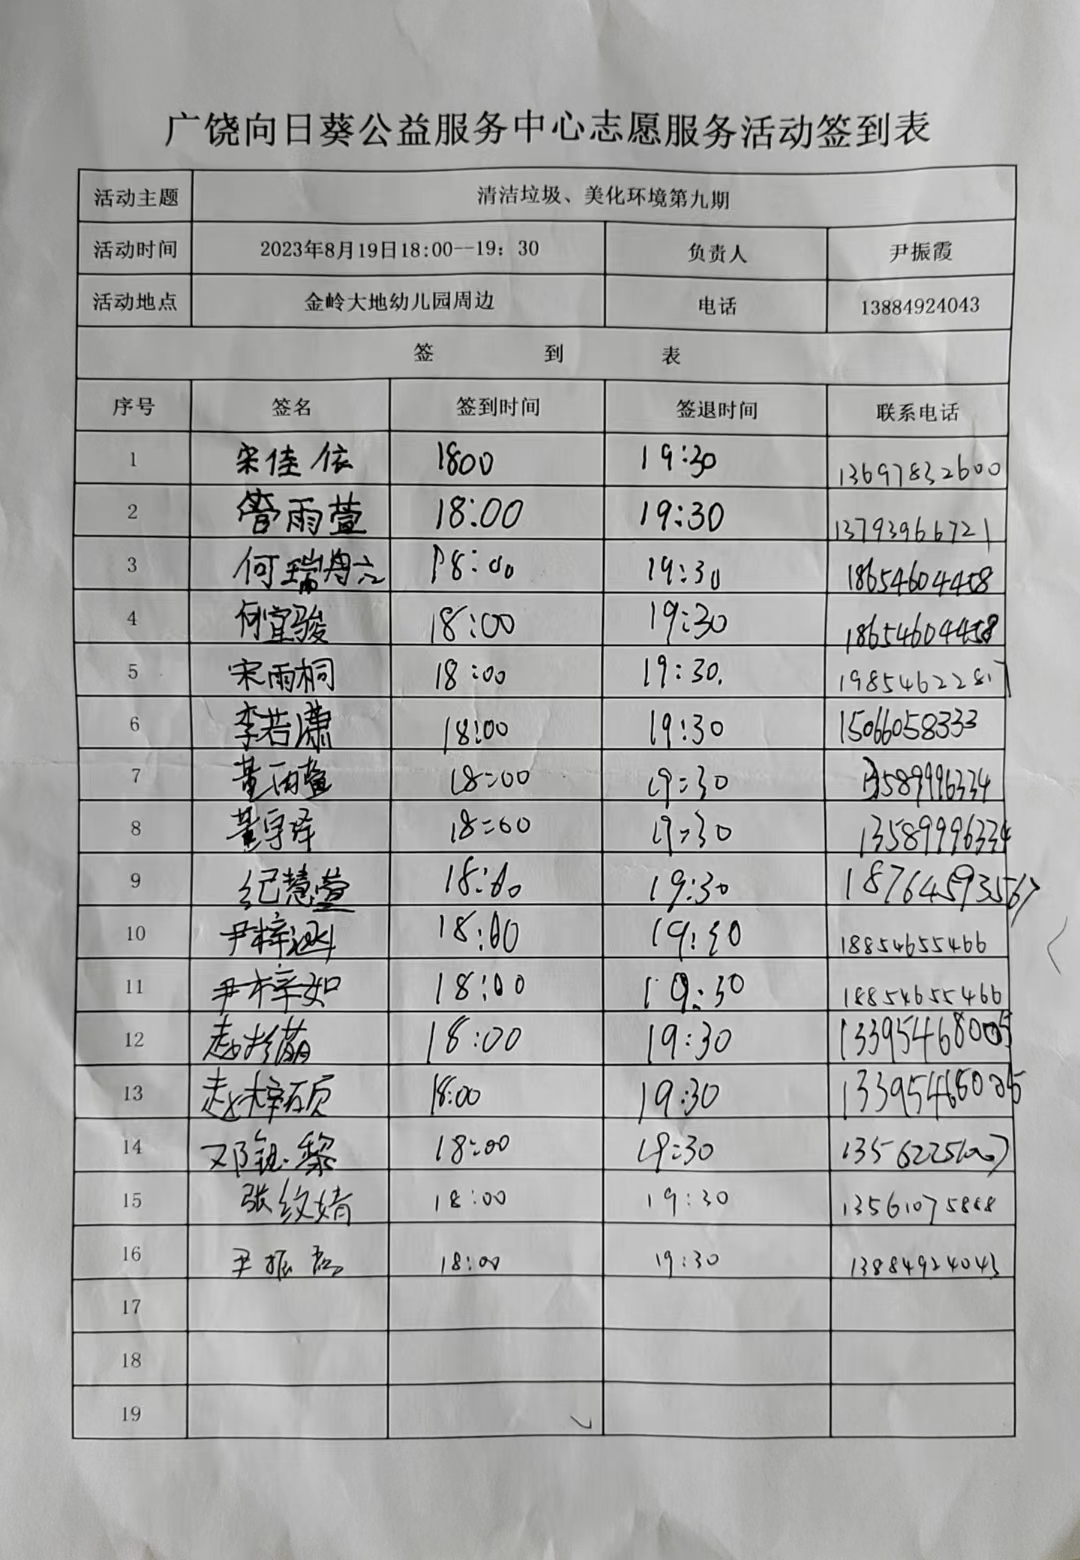 广饶向日葵公益服务中心志愿服务活动签到表
活动主题 清洁垃圾、美化环境第九期
活动时间 2023年8月19日18:00--19：30 负责人 尹振霞
活动地点 金岭大地幼儿园周边 电话 13884924043
签 到 表
序号 签名 签到时间 签退时间 联系电话
1 宋佳依 1800 19:30 13697832600
2 管雨萱 18:00 19:30 13793966721
3 何瑞 18:00 19:30 18654604458
4 何宜骏 18:00 19:30 18654604458
5 宋雨桐 18:00 19:30. 1985462281
6 李若潇 18:00 19:30 15066058333
7 董雨萱 18:00 19:30 13589996334
8 董宇泽 18:00 19:30 13589996334
9 纪慧萱 18:00 19:30 18764593567
10 尹梓涵 18:00 19:30 18854655466
11 尹梓如 18:00 19:30 18854655466
12 赵 18:00 19:30 13395468005
13 赵梓硕 18:00 19:30 13395468005
14 邓钰黎 18:00 19:30
15 张纹婧 18:00 19:30 13561075888
16 尹振 18:00 19:30 13884924043
17
18
19